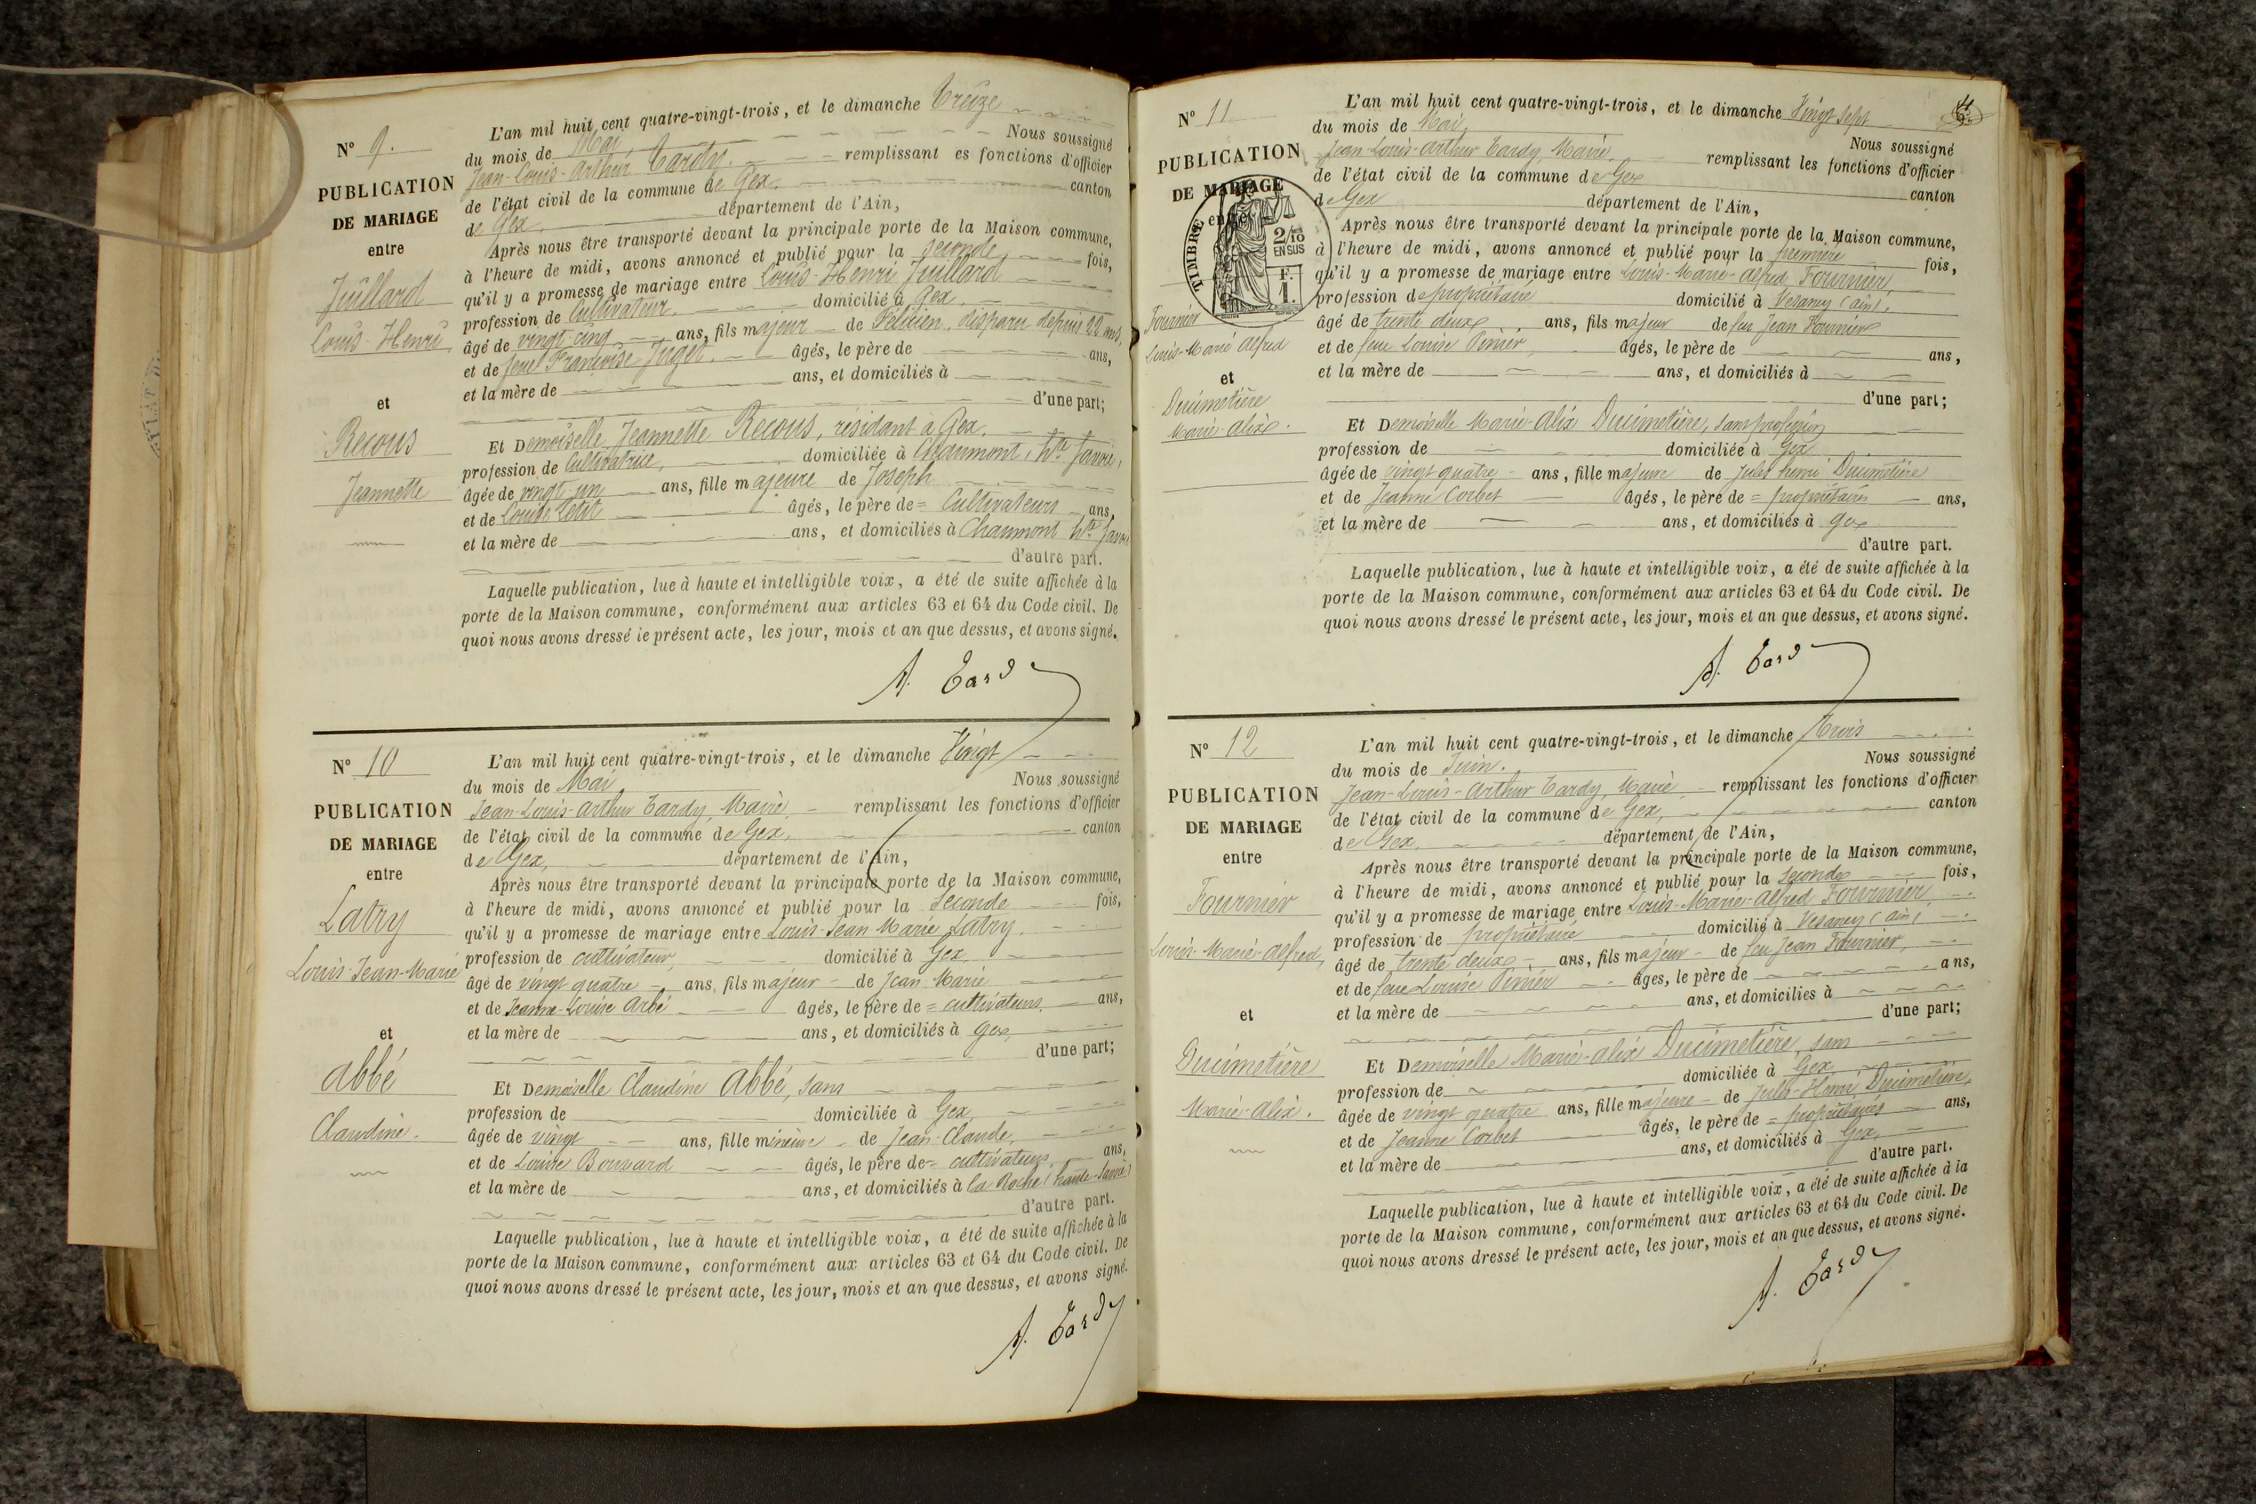 N° 9.
PUBLICATION
DE MARIAGE
entre
Juillard
Louis-Henri
et
Recous
Jeannette
L'an mil huit cent quatre-vingt-trois, et le dimanche Treize
du mois de Mai Nous soussigné
Jean-Louis-Arthur Tardy remplissant es fonctions d'officier
de l'état civil de la commune de Gex canton
de Gex département de l'Ain,
Après nous être transporté devant la principale porte de la Maison commune,
à l'heure de midi, avons annoncé et publié pour la seconde fois,
qu'il y a promesse de mariage entre Louis-Henri Juillard
profession de Cultivateur domicilié à Gex
âgé de vingt-cinq ans, fils majeur de Félicien, disparu depuis 22 ans,
et de feue Françoise âgés, le père de ans,
et la mère de ans, et domiciliés à
d'une part;
Et Demoiselle Jeannette Recous, résidant à Gex.
profession de Cultivatrice, domiciliée à Chaumont, Hte Savoie,
âgée de vingt-un ans, fille majeure de Joseph
et de Louise Petit âgés, le père de = Cultivateurs ans,
et la mère de ans, et domiciliés à Chaumont Hte Savoie
d'autre part.
Laquelle publication, lue à haute et intelligible voix, a été de suite affichée à la
porte de la Maison commune, conformément aux articles 63 et 64 du Code civil. De
quoi nous avons dressé le présent acte, les jour, mois et an que dessus, et avons signé.
A. Tardy
N° 10
PUBLICATION
DE MARIAGE
entre
Latry
Louis-Jean-Marie
et
Abbé
Claudine.
L'an mil huit cent quatre-vingt-trois, et le dimanche Vingt
du mois de Mai Nous soussigné
Jean-Louis-Arthur Tardy, Maire, remplissant les fonctions d'officier
de l'état civil de la commune de Gex, canton
de Gex, département de l'Ain,
Après nous être transporté devant la principale porte de la Maison commune,
à l'heure de midi, avons annoncé et publié pour la seconde fois,
qu'il y a promesse de mariage entre Louis-Jean-Marie Latry.
profession de cultivateur, domicilié à Gex
âgé de vingt quatre ans, fils majeur de Jean-Marie
et de Jeanne-Louise Arbé âgés, le père de = cultivateurs. ans,
et la mère de ans, et domiciliés à Gex,
d'une part;
Et Demoiselle Claudine Abbé, sans
profession de domiciliée à Gex,
âgée de vingt ans, fille mineure de Jean-Claude,
et de Louise Bouvard âgés, le père de = cultivateurs ans,
et la mère de ans, et domiciliés à la Roche (haute-Savoie)
d'autre part.
Laquelle publication, lue à haute et intelligible voix, a été de suite affichée à la
porte de la Maison commune, conformément aux articles 63 et 64 du Code civil. De
quoi nous avons dressé le présent acte, les jour, mois et an que dessus, et avons signé.
A. Tardy
N° 11
PUBLICATION
DE MARIAGE
entre
TIMBRE
2/10
EN SUS
F.
1.
Fournier
Louis-Marie Alfred
et
Ducimetière
Marie-Alix.
L'an mil huit cent quatre-vingt-trois, et le dimanche Vingt sept
du mois de Mai, Nous soussigné
Jean-Louis-Arthur Tardy, Maire remplissant les fonctions d'officier
de l'état civil de la commune de Gex canton
de Gex département de l'Ain,
Après nous être transporté devant la principale porte de la Maison commune,
à l'heure de midi, avons annoncé et publié pour la première fois,
qu'il y a promesse de mariage entre Louis-Marie-Alfred Fournier,
profession de propriétaire domicilié à Vesancy (Ain),
âgé de trente deux ans, fils majeur de feu Jean Fournier
et de feue Louise Pinier, âgés, le père de ans,
et la mère de ans, et domiciliés à
d'une part;
Et Demoiselle Marie-Alix Ducimetière, sans profession
profession de domiciliée à Gex
âgée de vingt quatre ans, fille majeure de Jules henri Ducimetière
et de Jeanne Corbet âgés, le père de = propriétaires ans,
et la mère de ans, et domiciliés à Gex
d'autre part.
Laquelle publication, lue à haute et intelligible voix, a été de suite affichée à la
porte de la Maison commune, conformément aux articles 63 et 64 du Code civil. De
quoi nous avons dressé le présent acte, les jour, mois et an que dessus, et avons signé.
A. Tardy
N° 12
PUBLICATION
DE MARIAGE
entre
Fournier
Louis-Marie-Alfred,
et
Ducimetière
Marie-Alix.
L'an mil huit cent quatre-vingt-trois, et le dimanche Trois
du mois de Juin. Nous soussigné
Jean-Louis-Arthur Tardy, Maire remplissant les fonctions d'officier
de l'état civil de la commune de Gex, canton
de Gex. département de l'Ain,
Après nous être transporté devant la principale porte de la Maison commune,
à l'heure de midi, avons annoncé et publié pour la seconde fois,
qu'il y a promesse de mariage entre Louis-Marie-Alfred Fournier,
profession de propriétaire domicilié à Vesancy (Ain)
âgé de trente deux ans, fils majeur de feu Jean Fournier,
et de feue Louise Pinier âgés, le père de ans,
et la mère de ans, et domiciliés à
d'une part;
Et Demoiselle Marie-Alix Ducimetière, sans
profession de domiciliée à Gex
âgée de vingt quatre ans, fille majeure de Jules-Henri Ducimetière,
et de Jeanne Corbet âgés, le père de = propriétaires ans,
et la mère de ans, et domiciliés à Gex,
d'autre part.
Laquelle publication, lue à haute et intelligible voix, a été de suite affichée à la
porte de la Maison commune, conformément aux articles 63 et 64 du Code civil. De
quoi nous avons dressé le présent acte, les jour, mois et an que dessus, et avons signé.
A. Tardy